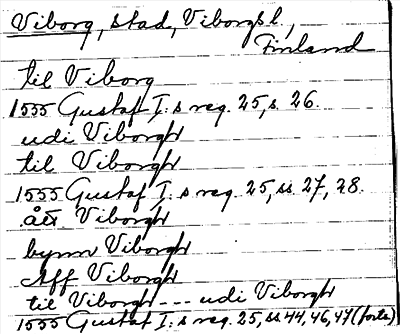 Viborg, stad, Viborgsl.,
Finland
til Viborg
1555 Gustaf I:s reg. 25, s. 26.
udi Viborgh
til Viborgh
1555 Gustaf I:s reg. 25, ss. 27, 28.
ått Viborgh
bynn Viborgh
Aff Viborgh
til Viborgh --- udi Viborgh
1555 Gustaf I:s reg. 25, ss. 44, 46, 47 (forts.)